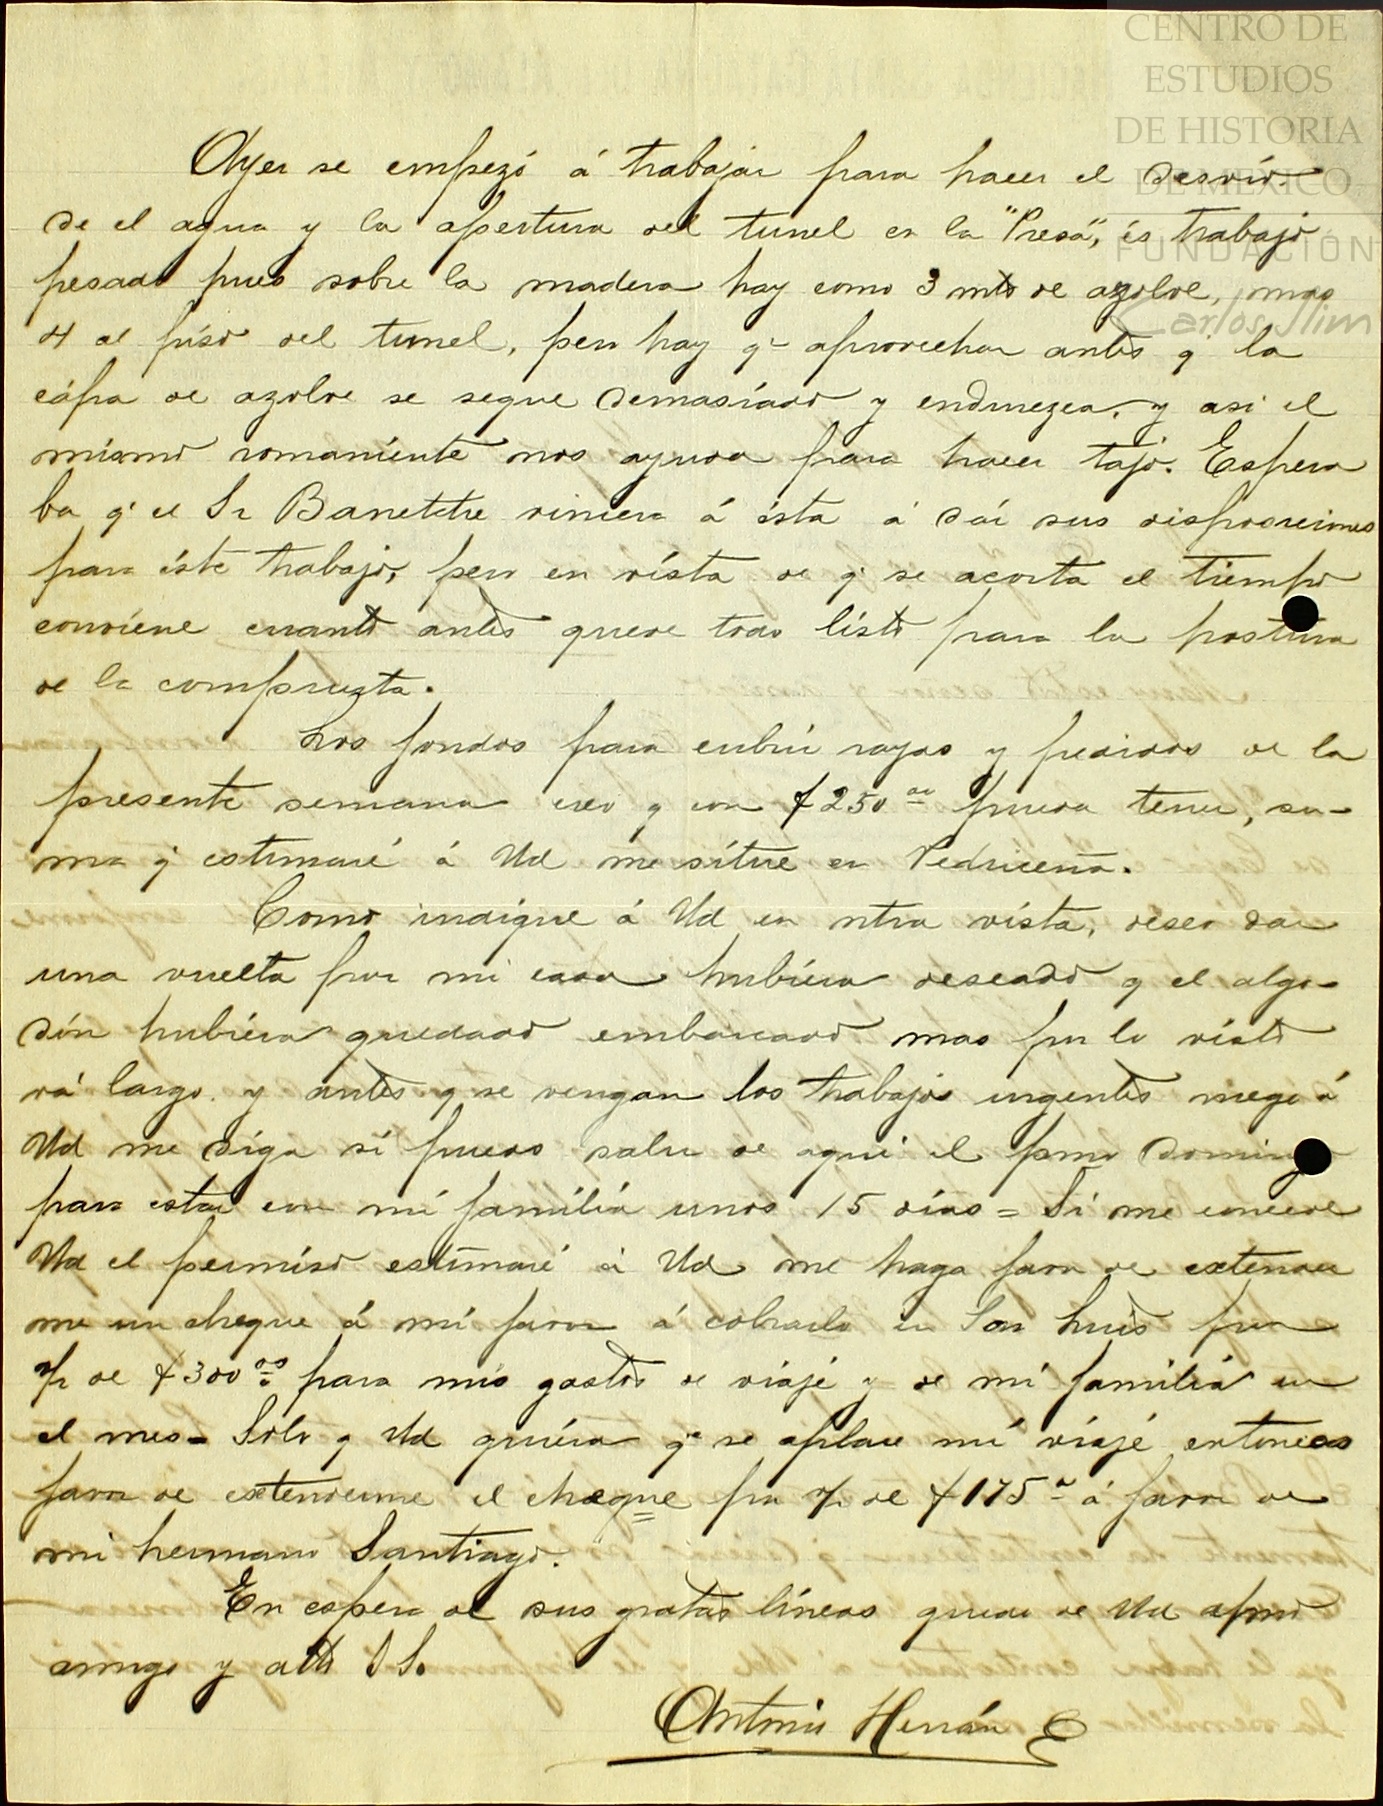 CENTRO DE
ESTUDIOS
DE HISTORIA
DE MÉXICO
FUNDACIÓN
Carlos Slim
Ayer se empezó á trabajar para hacer el desvío
de el agua y la apertura del tunel en la "Presa", és trabajo
pesado pues sobre la madera hay como 3 mts de azolve, mas
4 al piso del tunel, pero hay q- aprovechar antes q' la
cápa de azolve se seque demasiado y endurezca, y asi el
mismo romaniente nos ayuda para hacer tajo. Espera
ba q' el Sr Banetche viniera á ésta á dár sus disposiciones
para éste trabajo, pero en vista de q' se acorta el tiempo
conviene cuanto antes quede todo listo para la postura
de la compruzta.
Los fondos para cubrir rayas y pedidos de la
presente semana creo q con $250 oo pueda tener, su-
ma q' estimaré á Ud me sitúe en Pedriceña.
Como indiqué á Ud en ntra vista, deseo dar
una vuelta por mi casa hubiera deseado q el algo-
dón hubiera quedado embarcado mas por lo visto
vá largo y antes q se vengan los trabajos urgentes ruego á
Ud me diga si puedo salir de aqui el pmo Domingo
para estar con mi familia unos 15 dias = Si me concede
Ud el permiso estimaré á Ud me haga favor de extender
me un cheque á mi favor á cobrarlo en San Luis por
v/r de $300 oo para mis gastos de viaje y de mi familia en
el mes - Solo q Ud quiera q' se aplace mi viaje entonces
favor de extenderme el cheque por v/r de $175 oo á favor de
mi hermano Santiago.
En espera de sus gratas líneas quedo de Ud afmo
amigo y atto S S.
Antonio Hernán E